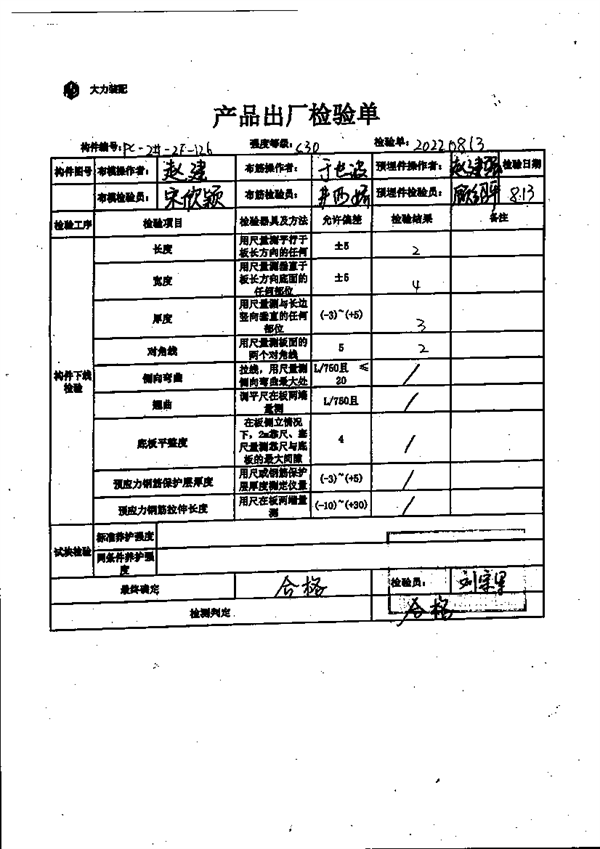 大力装配
产品出厂检验单
构件编号:PC-2#-2F-126 强度等级:C30 检验单:20220813
构件图号 布模操作者: 赵建 布筋操作者: 预埋件操作者: 赵建强 检验日期
布模检验员: 宋欣颖 布筋检验员: 预埋件检验员: 8.13
检验工序 检验项目 检验器具及方法 允许偏差 检验结果 备注
构件下线检验
长度 用尺量测平行于板长方向的任何 ±5 2
宽度 用尺量测垂直于板长方向底面的任何部位 ±5 4
厚度 用尺量测与长边竖向垂直的任何部位 (-3)~(+5) 3
对角线 用尺量测板面的两个对角线 5 2
侧向弯曲 拉线，用尺量测侧向弯曲最大处 L/750且 ≤20 /
翘曲 调平尺在板两端量测 L/750且 /
底板平整度 在板侧立情况下，2m靠尺、塞尺量测靠尺与底板的最大间隙 4 /
预应力钢筋保护层厚度 用尺或钢筋保护层厚度测定仪量 (-3)~(+5) /
预应力钢筋拉伸长度 用尺在板两端量测 (-10)~(+30) /
试块检验 标准养护强度
同条件养护强度
最终确定 合格 检验员:
检测判定 合格